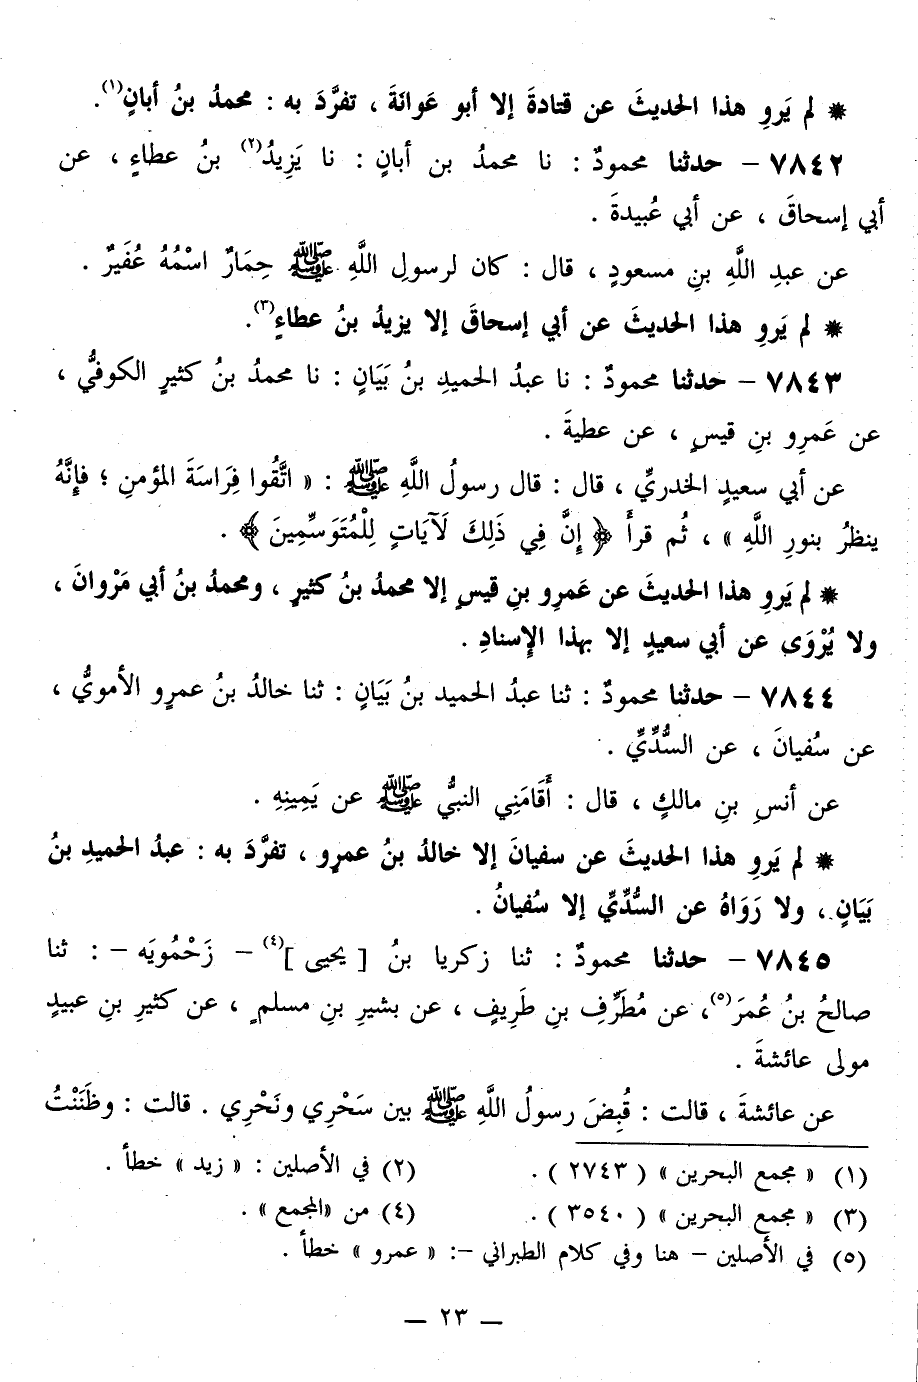 * لم يَروِ هذا الحديثَ عن قتادةَ إلا أبو عَوانَةَ ، تفرَّدَ به : محمدُ بنُ أبانٍ(١).
٧٨٤٢ – حدثنا محمودٌ : نا محمدُ بن أبانٍ : نا يَزِيدُ(٢) بنُ عطاءٍ ، عن
أبي إسحاقَ ، عن أبي عُبيدةَ .
عن عبدِ اللَّهِ بنِ مسعودٍ ، قال : كان لرسولِ اللَّهِ ﷺ حِمَارٌ اسْمُهُ عُفَيرٌ .
* لم يَروِ هذا الحديثَ عن أبي إسحاقَ إلا يزيدُ بنُ عطاءٍ(٣).
٧٨٤٣ – حدثنا محمودٌ : نا عبدُ الحميدِ بنُ بَيَانٍ : نا محمدُ بنُ كثيرٍ الكوفيُّ ،
عن عَمرِو بنِ قيسٍ ، عن عطيةَ .
عن أبي سعيدٍ الخدريِّ ، قال : قال رسولُ اللَّهِ ﷺ : « اتَّقُوا فِرَاسَةَ المؤمنِ ؛ فإنَّهُ
ينظرُ بنورِ اللَّهِ » ، ثُم قرأَ ﴿ إِنَّ فِي ذَلِكَ لَآيَاتٍ لِلْمُتَوَسِّمِينَ ﴾ .
* لم يَروِ هذا الحديثَ عن عَمرِو بنِ قيسٍ إلا محمدُ بنُ كثيرٍ ، ومحمدُ بنُ أبي مَرْوانَ ،
ولا يُرْوَى عن أبي سعيدٍ إلا بهذا الإسنادِ .
٧٨٤٤ – حدثنا محمودٌ : ثنا عبدُ الحميد بنُ بَيَانٍ : ثنا خالدُ بنُ عمرٍو الأمويُّ ،
عن سُفيانَ ، عن السُّدِّيِّ .
عن أنسِ بنِ مالكٍ ، قال : أَقَامَنِي النبيُّ ﷺ عن يَمِينِهِ .
* لم يَروِ هذا الحديثَ عن سفيانَ إلا خالدُ بنُ عمرٍو ، تفرَّدَ به : عبدُ الحميدِ بنُ
بَيَانٍ ، ولا رَوَاهُ عن السُّدِّيِّ إلا سُفيانُ .
٧٨٤٥ – حدثنا محمودٌ : ثنا زكريا بنُ [ يحيى ](٤) – زَحْمُويَه – : ثنا
صالحُ بنُ عُمرَ(٥)، عن مُطَرِّفِ بنِ طَرِيفٍ ، عن بشيرِ بنِ مسلمٍ ، عن كثيرِ بنِ عبيدٍ
مولى عائشةَ .
عن عائشةَ ، قالت : قُبِضَ رسولُ اللَّهِ ﷺ بين سَحْرِي ونَحْرِي . قالت : وظَنَنْتُ
(١) « مجمع البحرين » ( ٢٧٤٣ ) . (٢) في الأصلين : « زيد » خطأ .
(٣) « مجمع البحرين » ( ٣٥٤٠ ) . (٤) من «المجمع» .
(٥) في الأصلين – هنا وفي كلام الطبراني –: « عمرو » خطأ .
— ٢٣ —